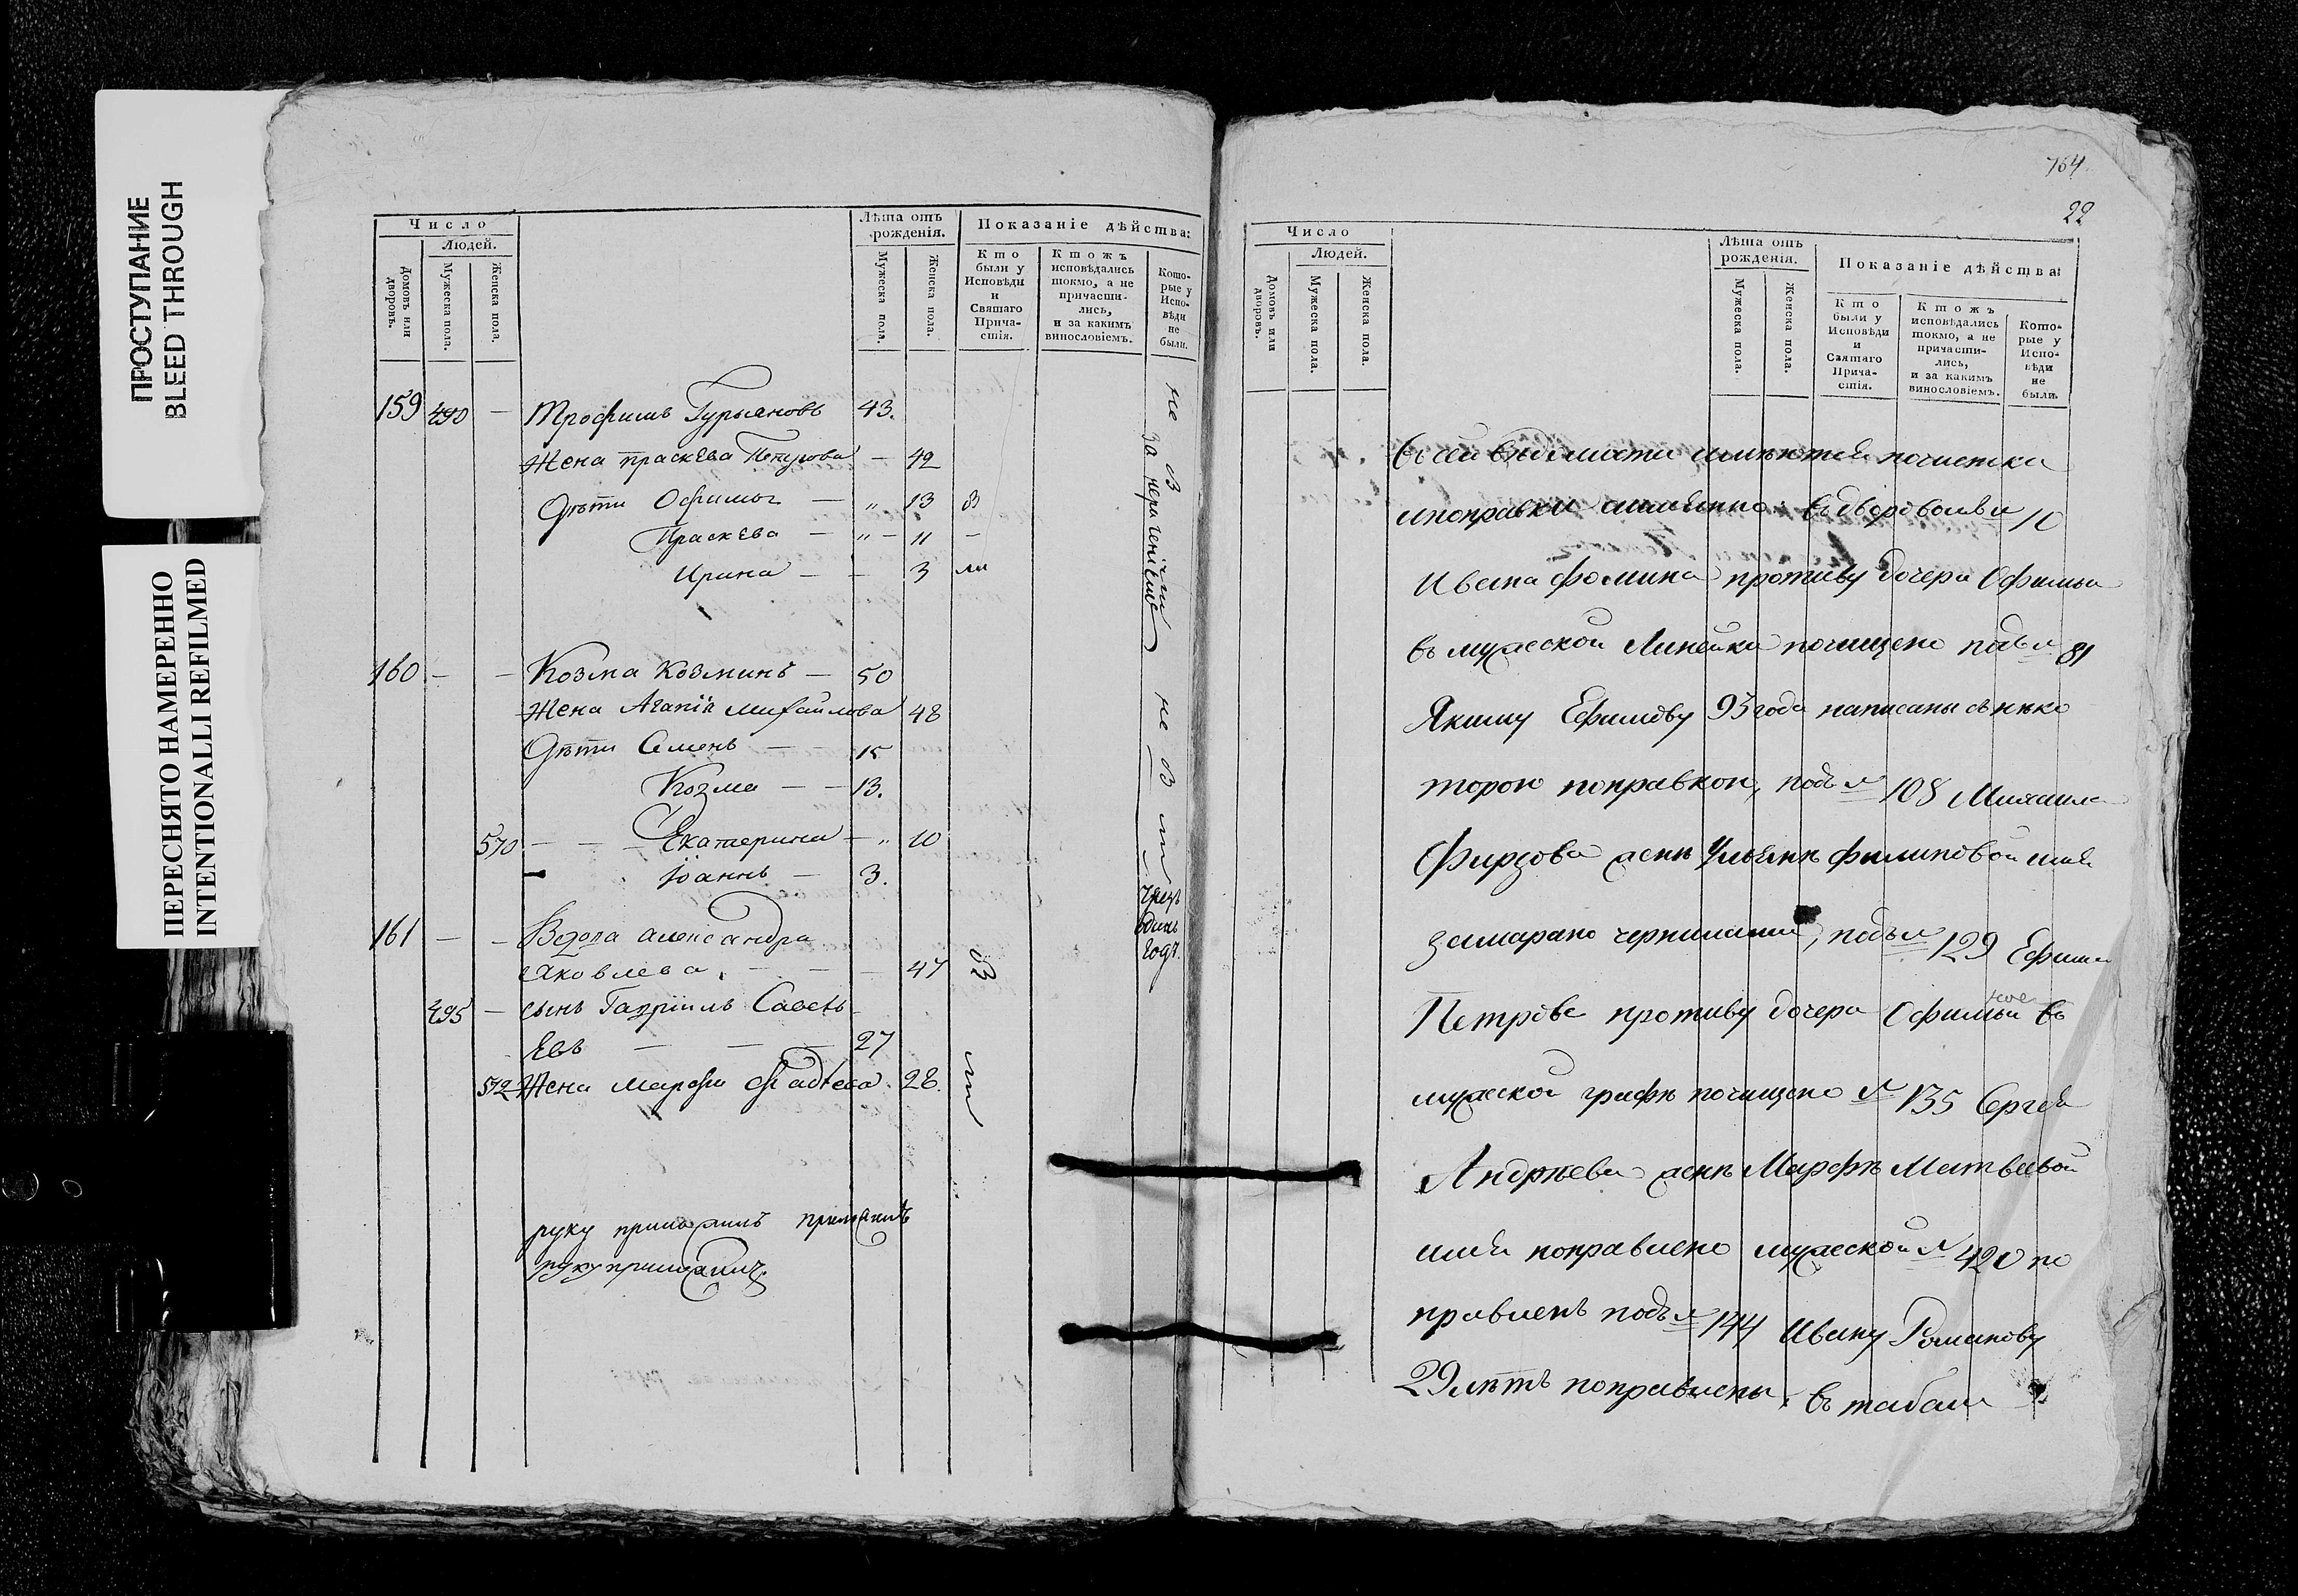 ПРОСТУПАНИЕ
BLEED THROUGH
ПЕРЕСНЯТО НАМЕРЕННО
INTENTIONALLI REFILMED
Число
Людей.
Домовъ или дворовъ.
Мужеска пола.
Женска пола.
Лѣта отъ рожденія.
Мужеска пола.
Женска пола.
Показаніе дѣйства:
Кто были у Исповѣди и Святаго Причастія.
Ктожъ исповѣдались токмо, а не причастились, и за какимъ винословіемъ.
Которые у Исповѣди не были.
159 490 — Трофимъ Гурьяновъ 43.
Жена Праскева Петрова — 42
Дѣти Офимья — „ 13
Праскева — „ — 11 —
Ирина — — 3
160 — — Козма Козминъ — 50
Жена Агапія Михайлова 48
Дѣти Семенъ — — 15
Козма — — 13.
570 — — Екатерина — „ 10
Іоаннъ — 3.
161 — — Вдова Александра
Яковлева. — — — 47
495 — сынъ Гавріилъ Савель
евъ — — — 27
572 Жена Марфа Фадѣева. 28.
не
за нераченіемъ
не
чрезъ
одинъ
годъ.
руку приложилъ приложилъ
руку приложилъ
764
22
Число
Людей.
Домовъ или дворовъ.
Мужеска пола.
Женска пола.
Лѣта отъ рожденія.
Мужеска пола.
Женска пола.
Показаніе дѣйства:
Кто были у Исповѣди и Святаго Причастія.
Ктожъ исповѣдались токмо, а не причастились, и за какимъ винословіемъ.
Которые у Исповѣди не были.
въ сей вѣдомости имѣются почистки
и поправки имянно: въ дворовомъ № 10
Ивана Фомина противу дочери Офимьи
въ мужеской линейки почищено подъ № 81
Якиму Ефимову 93 года написаны съ нѣко
торою поправкою, подъ № 108 Михаила
Фирсова женѣ Ульянѣ Филиповой имя
замарано чернилами, подъ № 129 Ефима
Петрова противу дочери Офимьи въ
мужеской графѣ почищено № 135 Сергея
Андрѣева женѣ Марфѣ Матвеевой
имя поправлено мужеской № 420 по
правленъ подъ № 144 Ивану Романову
29 лѣтъ поправлены. въ табели